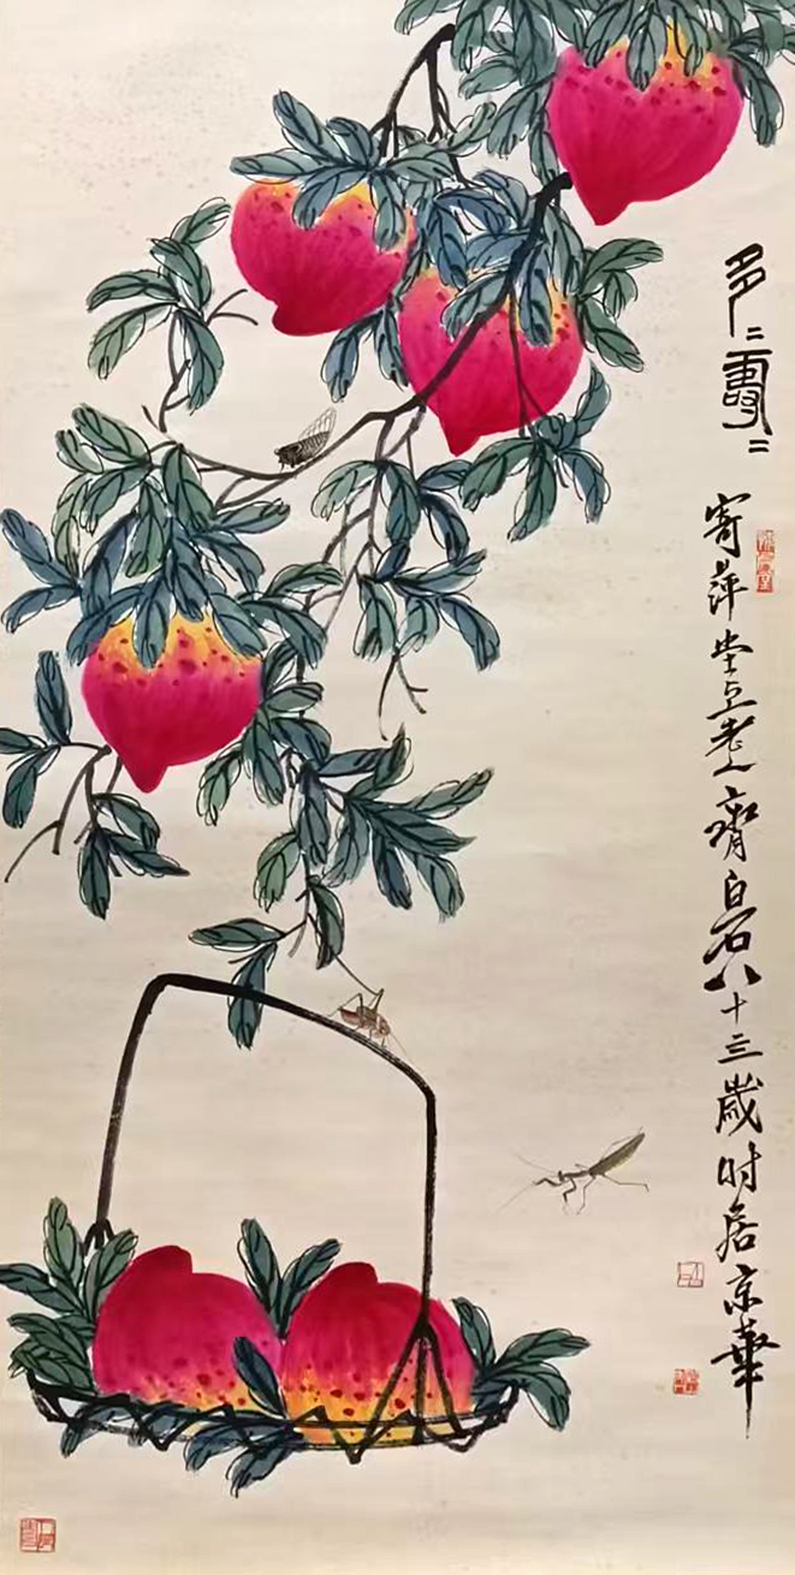 多〻壽〻
寄萍堂上老人齊白石八十三歲時居京華